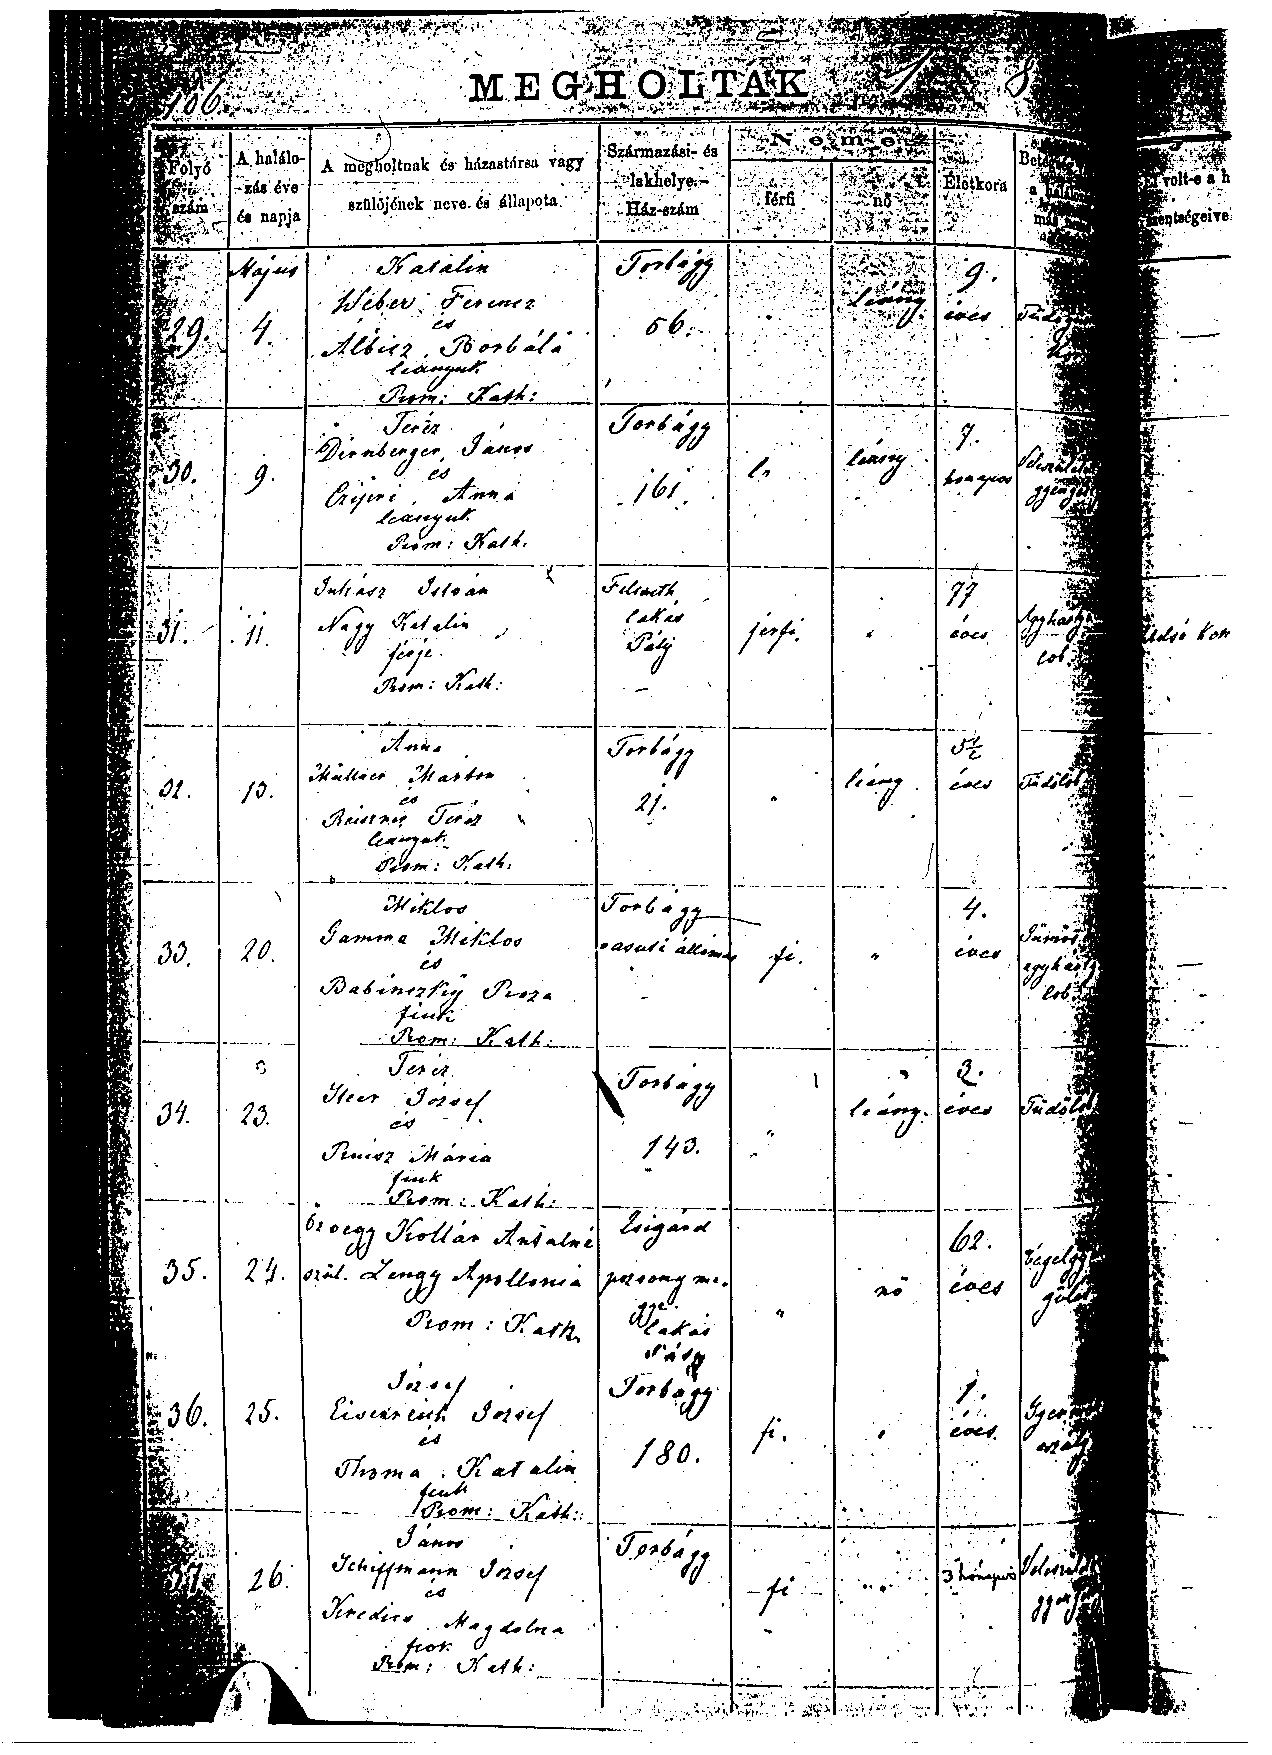 106.
MEGHOLTAK 1 8
Folyó szám
A halálo-
zás éve
és napja
A megholtnak és házastársa vagy
szülőjének neve és állapota.
Származási- és
lakhelye.-
Ház-szám
Neme
férfi
nő
Életkora
volt-e a h
entségeive
29.
Május
4.
Katalin
Wéber Ferencz
és
Albisz Borbála
leányuk
Rom: Kath:
Torbágy
56.
leány.
9.
éves
30.
9.
Teréz
Dirnberger János
és
Anna
leányuk
Rom: Kath.
Torbágy
161.
leány
7.
hónapos
31.
11.
Juhász István
Nagy Katalin
férje.
Rom: Kath:
Felsneth
lakás
Páty
–
férfi.
"
77
éves
Agyhárty
lob.
32.
13.
Anna
Müllner Márton
és
Teréz
leányuk.
Rom: Kath:
Torbágy
21.
"
leány
5½
éves
Tüdőlob
33.
20.
Miklos
Gamma Miklos
és
Babinszky Roza
fiuk
Rom: Kath:
Torbágy
vasuti állomás
–
fi.
"
4.
éves
agyhárty
lob.
34.
23.
Teréz
József
és
Mária
fiuk
Rom: Kath:
Torbágy
143.
"
leány.
3.
éves
Tüdőlob
35.
24.
özvegy Kollár Antalné
szül. Lengy Apollonia
Rom: Kath.
Zsigárd
pozsony me.
gye
lakás
Páty
"
nő
62.
éves
Végelgy
gülés
36.
25.
József
Eisenreich József
és
Thoma Katalin
fiuk
Rom: Kath:
Torbágy
180.
fi.
"
1.
éves
37.
26.
János
Schiffmann József
és
Kredics Magdolna
fiok
Rom: Kath:
Torbágy
fi
"
3 hónapos